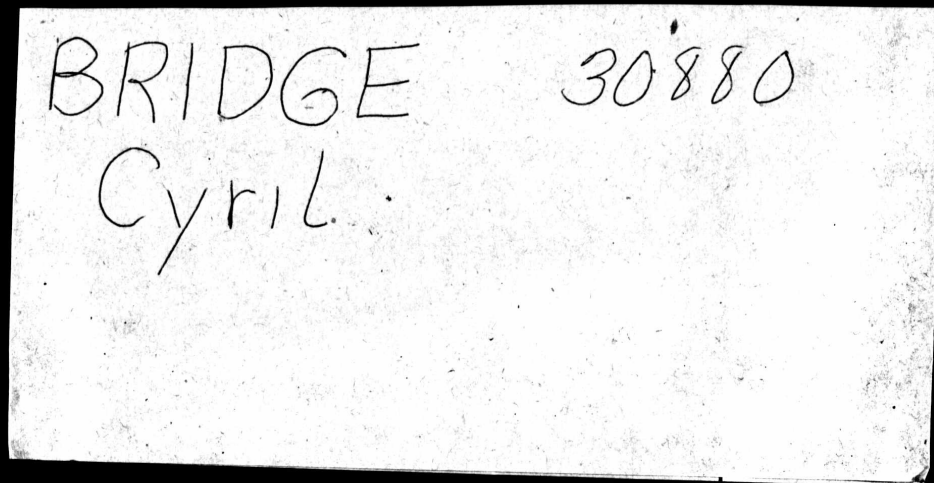 BRIDGE 30880
Cyril.